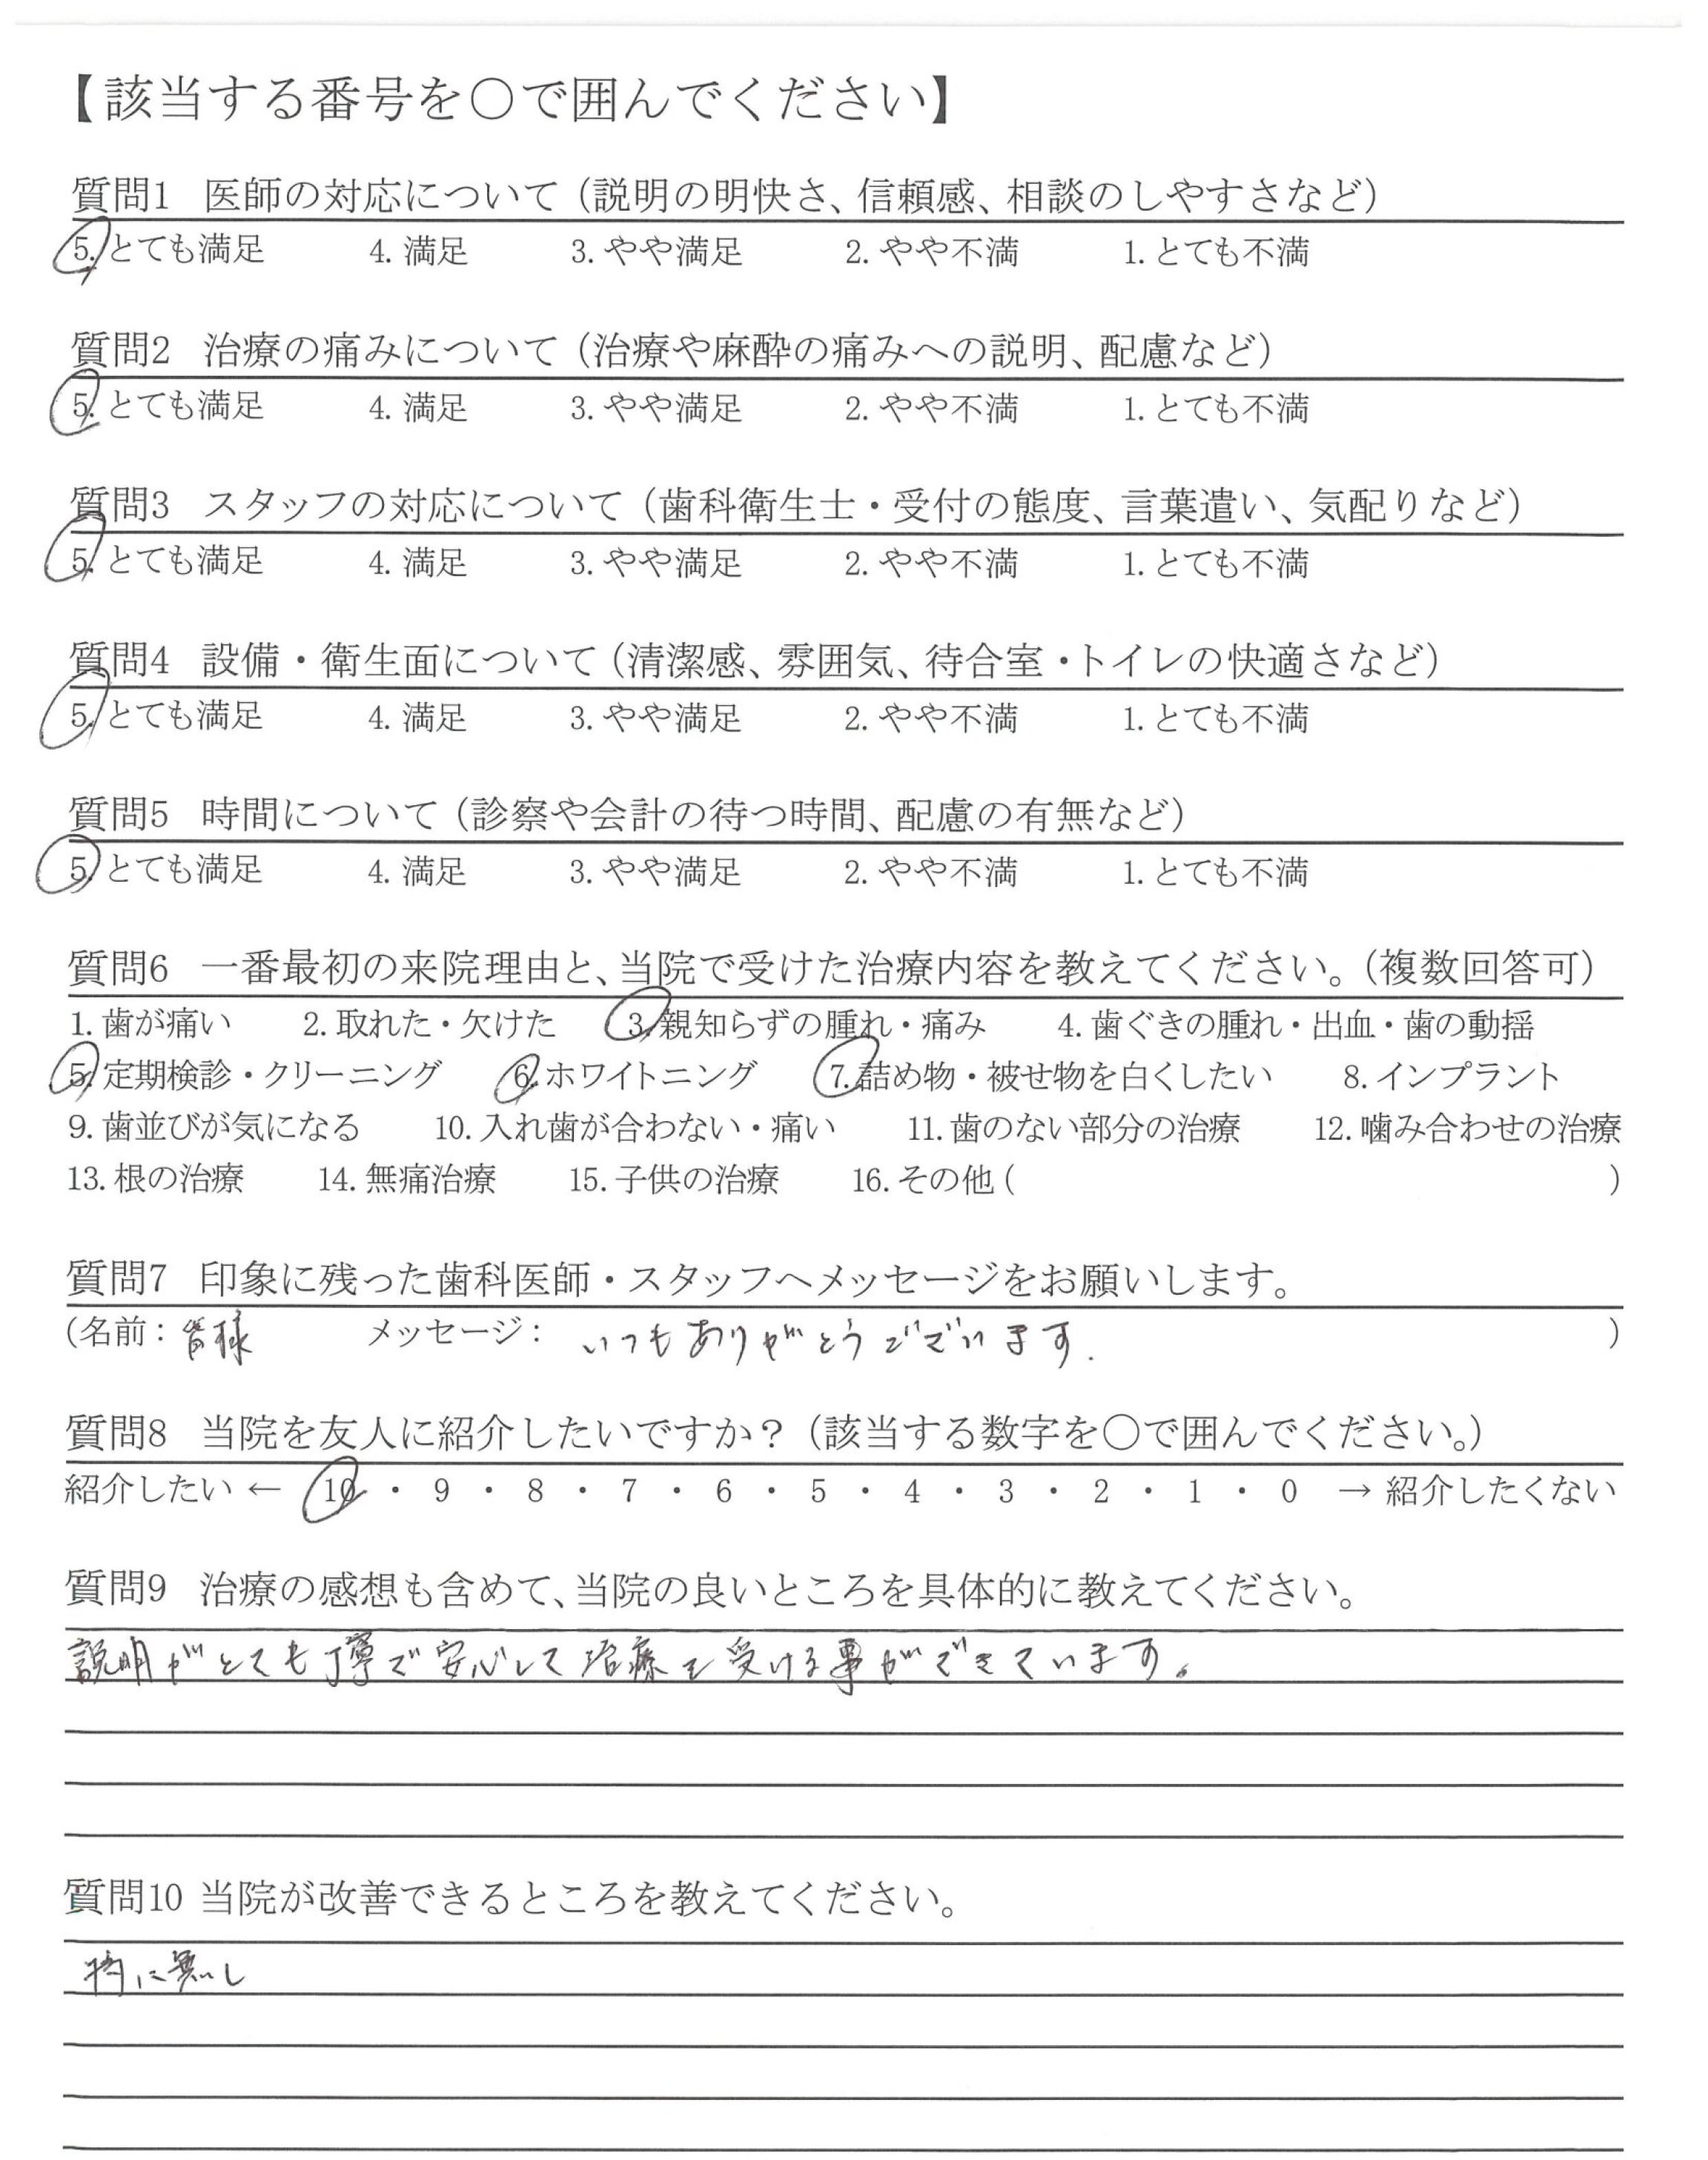 【該当する番号を○で囲んでください】
質問1 医師の対応について（説明の明快さ、信頼感、相談のしやすさなど）
5. とても満足 4. 満足 3. やや満足 2. やや不満 1. とても不満
質問2 治療の痛みについて（治療や麻酔の痛みへの説明、配慮など）
5. とても満足 4. 満足 3. やや満足 2. やや不満 1. とても不満
質問3 スタッフの対応について（歯科衛生士・受付の態度、言葉遣い、気配りなど）
5. とても満足 4. 満足 3. やや満足 2. やや不満 1. とても不満
質問4 設備・衛生面について（清潔感、雰囲気、待合室・トイレの快適さなど）
5. とても満足 4. 満足 3. やや満足 2. やや不満 1. とても不満
質問5 時間について（診察や会計の待つ時間、配慮の有無など）
5. とても満足 4. 満足 3. やや満足 2. やや不満 1. とても不満
質問6 一番最初の来院理由と、当院で受けた治療内容を教えてください。（複数回答可）
1. 歯が痛い 2. 取れた・欠けた 3. 親知らずの腫れ・痛み 4. 歯ぐきの腫れ・出血・歯の動揺
5. 定期検診・クリーニング 6. ホワイトニング 7. 詰め物・被せ物を白くしたい 8. インプラント
9. 歯並びが気になる 10. 入れ歯が合わない・痛い 11. 歯のない部分の治療 12. 噛み合わせの治療
13. 根の治療 14. 無痛治療 15. 子供の治療 16. その他（ ）
質問7 印象に残った歯科医師・スタッフへメッセージをお願いします。
（名前：皆様 メッセージ： いつもありがとうございます. ）
質問8 当院を友人に紹介したいですか？（該当する数字を○で囲んでください。）
紹介したい ← 10 ・ 9 ・ 8 ・ 7 ・ 6 ・ 5 ・ 4 ・ 3 ・ 2 ・ 1 ・ 0 → 紹介したくない
質問9 治療の感想も含めて、当院の良いところを具体的に教えてください。
説明がとても丁寧で安心して治療を受ける事ができています。
質問10 当院が改善できるところを教えてください。
特に無し